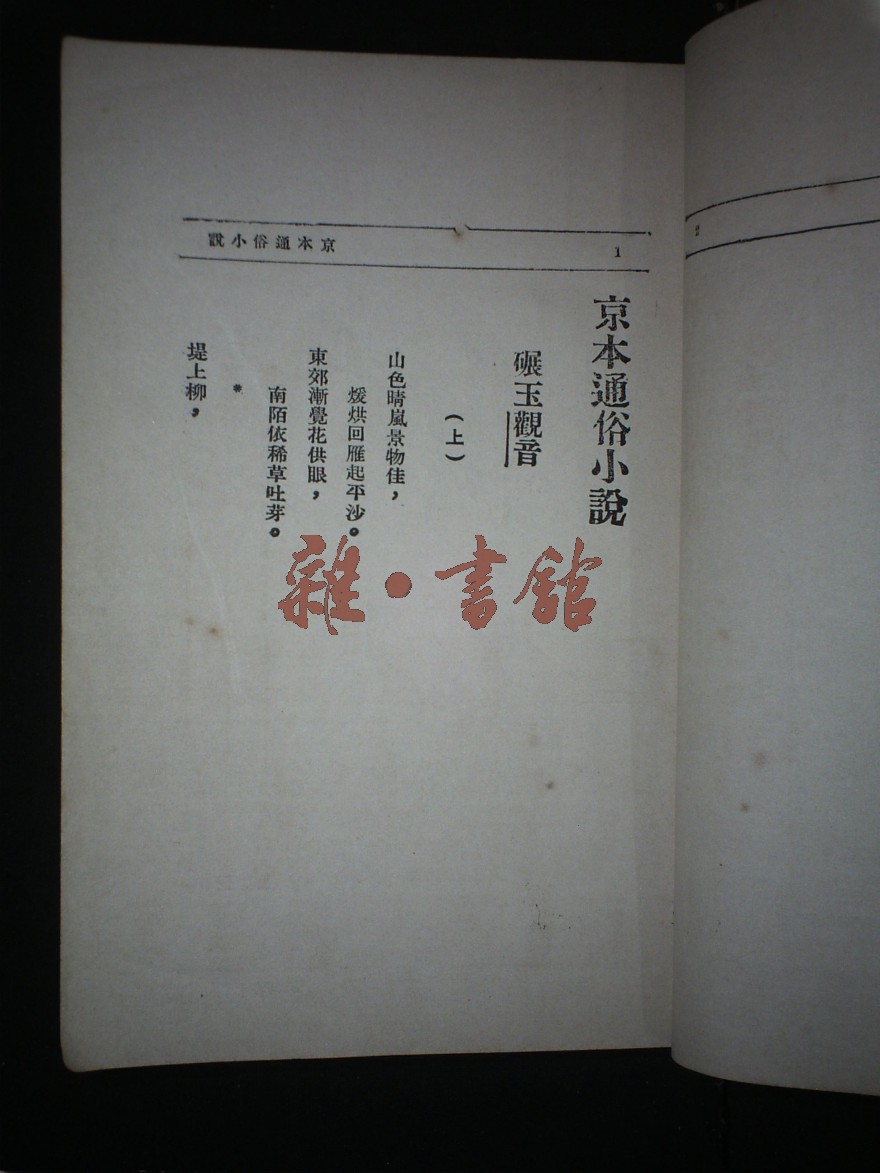 京本通俗小說
1
京本通俗小說
碾玉觀音
(上)
山色晴嵐景物佳，
煖烘回雁起平沙。
東郊漸覺花供眼，
南陌依稀草吐芽。
*
堤上柳，
2
雜·書館